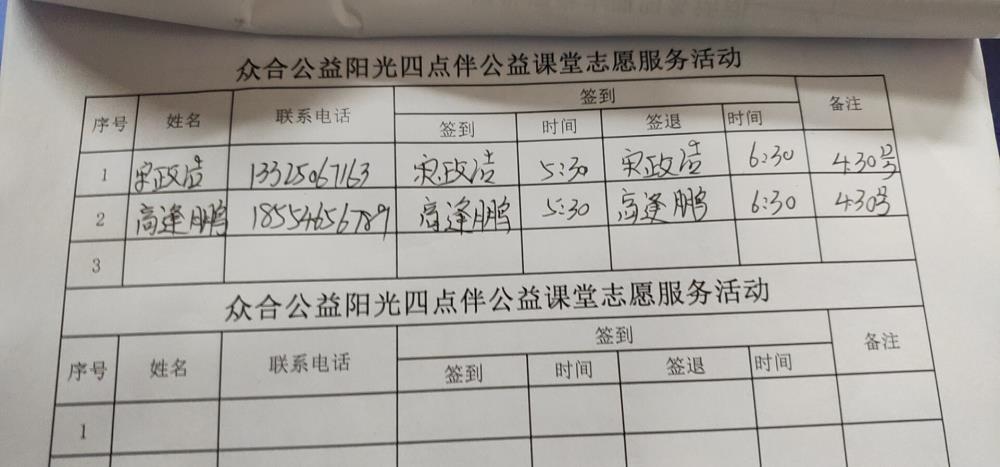 众合公益阳光四点伴公益课堂志愿服务活动
序号 姓名 联系电话 签到 备注
签到 时间 签退 时间
1 宋政洁 13325067163 宋政洁 5:30 宋政洁 6:30 4.30号
2 高逢鹏 18554656789 高逢鹏 5:30 高逢鹏 6:30 4.30号
3
众合公益阳光四点伴公益课堂志愿服务活动
序号 姓名 联系电话 签到 备注
签到 时间 签退 时间
1